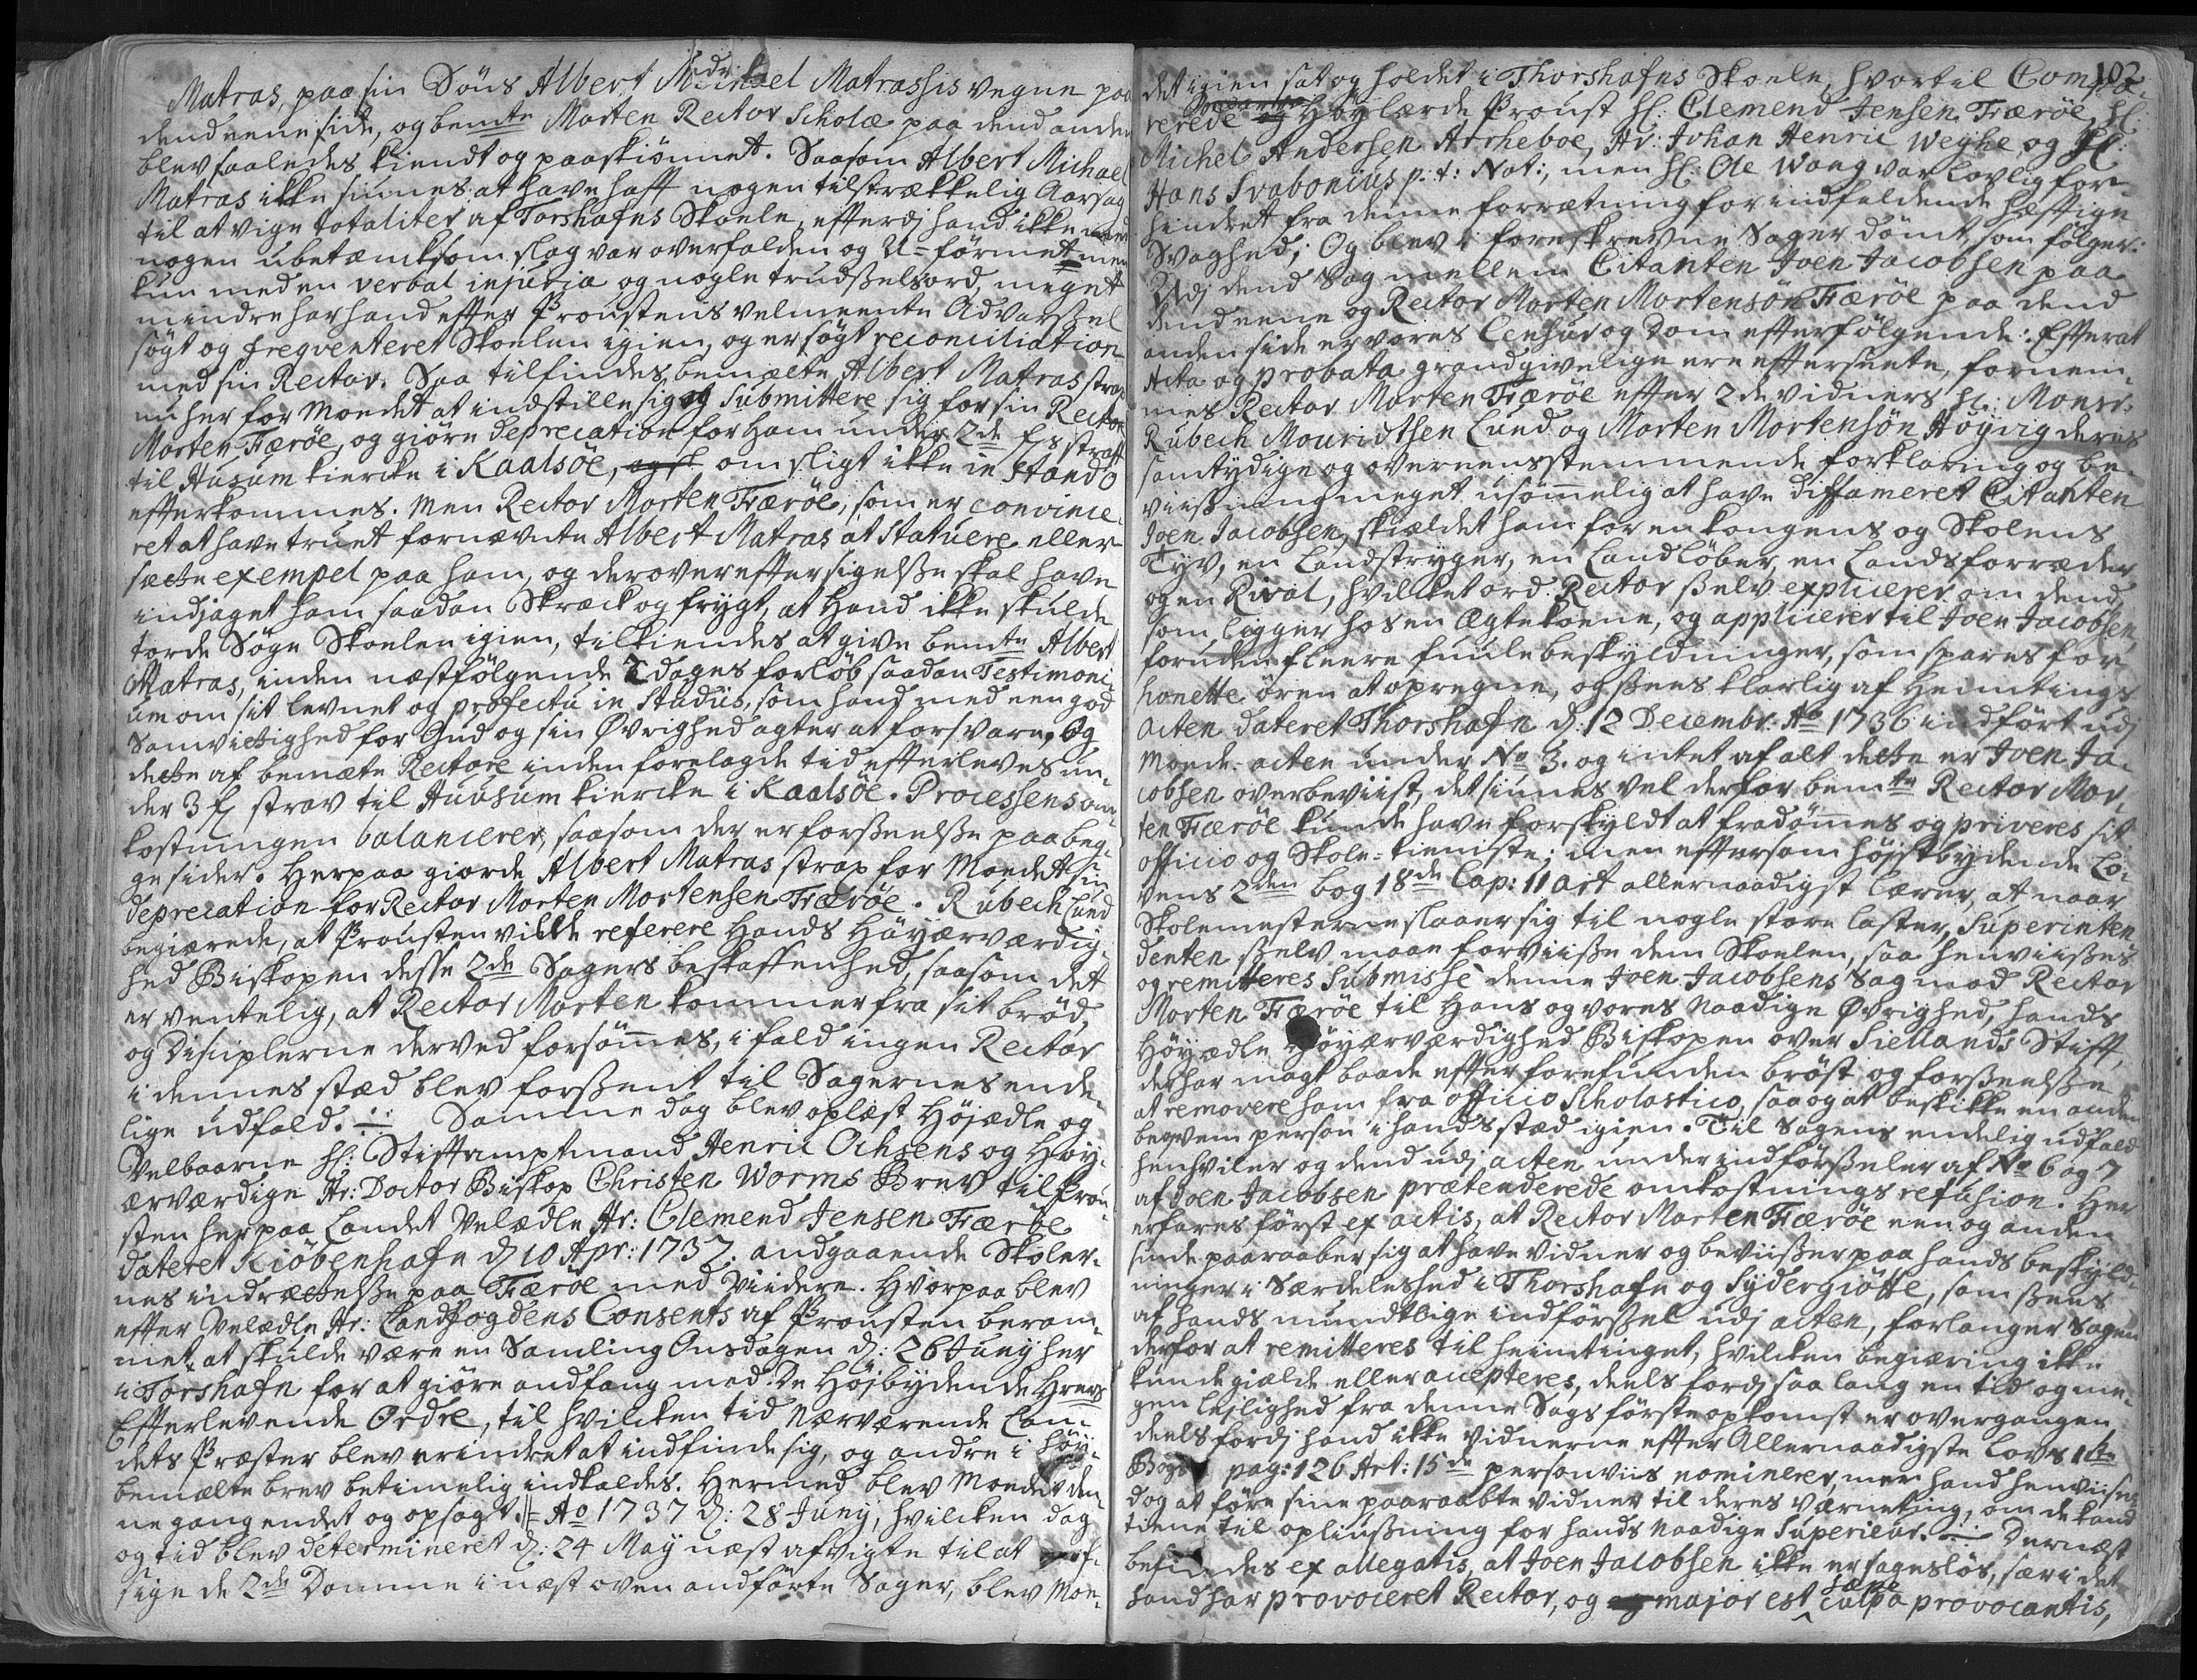 Matras, paa sin Søns Albert Michael Matrassis vegne paa
dend eene side, og bemte Morten Rector Scholæ paa dend anden
blev saaledes kiendt og paaskiønnet. Saasom Albert Michael
Matras ikke sinnes at have haft nogen tilstrækkelig Aarsag
til at vige totaliter af Torshafns Skoele, efterdj hand ikke med
nogen ubetæncksom slag var overfalden og U-førmet men
kun med en verbal injuria og nogle trudßels ord, meget
mindre har hand efter Proustens velmeente Advarßel
søgt og freqventeret Skoelen igien, og ersøgt reconciliation
med sin Rector. Saa tilfindes bemælte Albert Matras strax
nu her for Moedet at indstille sig og submittere sig for sin Rector
Morten Færøe, og giøre deprecation for ham under 2de ß straff
til Husum kiercke i Kaalsøe, om sligt ikke in stando
efterkommes. Men Rector Morten Færøe, som er convince-
ret at have truet fornævnte Albert Matras at statuere eller
sætte exempel paa ham, og derover efter sigelße skal have
indjaget ham saadan Skræck og frygt, at hand ikke skulde
torde Søge Skoelen igien, tilkiendes at give bemte Albert
Matras, inden næstfølgende 2 dages forløb saadan Testimoni-
um om sit levnet og profectu in studiis, som hand med een god
Samvittighed for Gud og sin Øvrighed agter at forsvare, Og
dette af bemæte Rectore inden forelagde tid efterleves un-
der 3 ß strav til Huusum kiercke i Kaalsøe. Processens om-
kostningen balancerer, saasom der er forßeelße paa beg-
ge sider. Herpaa giorde Albert Matras strax for Moedet sin
deprecation for Rector Morten Mortensen Færøe. Rubech Lund
begiærede, at Prousten vilde referere Hands Høyærværdig-
hed Biskopen desse 2de Sagers beskaffenhed, saasom det
er ventelig, at Rector Morten kommer fra sit brød,
og Disciplerne derved forsømmes, i fald ingen Rector
i dennes stæd blev forßent til Sagernes ende-
lige udfald. ÷ Samme dag blev oplæst Høyædle og
Velbaarne Hl: Stiftampmand Henric Ochsens og Høy-
ærværdige Hr: Doctor Biskop Christen Worms Brev til Prou-
sten her paa Landet Velædle Hr: Clemend Jensen Færøe
dateret Kiøbenhafn dj 10 Apr: 1737. andgaaende Skoler-
nes indrættelße paa Færøe med Viidere. Hvorpaa blev
efter Velædle Hr: Landfogdens Consents af Prousten beram-
met, at skulde være en Samling Onsdagen dj: 26 Junij her
i Torshafn for at giøre andfang med De Høybydende Herrers
Efterlevende Ordre, til hvilcken tid Nærværende Lan-
dets Præster blev erindret at indfinde sig, og andre i høy-
bemælte brev betimelig indkaldes. Hermed blev Moedet den-
ne gang endet og opsagt. ╟ Ao 1737 dj: 28 Junij, hvilcken dag
og tid blev determineret dj: 24 May næst afvigte til at af-
sige de 2de Domme i næst oven andførte Sager, blev Moe-
102
det igien sat og holdet i Thorshafns Skoele, hvortil Compa-
rerede Høylærde Proust Hl: Clemend Jensen Færøe, Hl:
Michel Andersen Arrheboe, Hr: Johan Henric Weyhe, og Hl:
Hans Svabonius p: t: Not:, men Hl: Ole Wang var Lovlig for-
hindret fra denne forrætning for indfaldende hæftige
Svaghed; Og blev i foreskrevne Sager dømt, som følger:
Udj dend Sag mellem Citanten Joen Jacobsen paa
dend eene og Rector Morten Mortensøn Færøe paa dend
anden side er vores Censur og Dom efterfølgende: Efterat
Acta og probata grandgivelige ere efterseete, fornem-
mes Rector Morten Færøe efter 2de vidners Sr: Monsr:
Rubech Mouridtsen Lund og Morten Mortensøn Høyvig deres
samtydige og overeensstemmende forklaring og be-
viißning meget usømmelig at have diffameret Citanten
Joen Jacobsen, skieldet ham for en kongens og Skolens
Tyv, en Landstryger, en Landløber, en Landsforræder
og en Rival, hvilcket ord Rector ßelv explicerer om dend,
som ligger hos en Ægtekoene, og applicerer til Joen Jacobsen
foruden fleere fuule beskyldninger, som spares for
honette ören at opregne, og ßees klarlig af Heimtings
acten dateret Thorshafn dj: 12 Decembr: Ao 1736 indført udj
Moede-acten under No 3. og intet af alt dette er Joen Ja-
cobsen overbeviist, det siunes vel derfor bemte Rector Mor-
ten Færøe kunde have forskyldt at fradømmes og priveres sit
officio og Skole-tieniste; men eftersom høystbydende Lo-
vens 2den bog 18de Cap: 11 art allernaadigst lærer, at naar
Skolemesterne slaaer sig til nogle store laster, Superinten-
denten ßelv maae forviiße dem Skoelen, saa henviißes
og remitteres submisse denne Joen Jacobsens Sag mod Rector
Morten Færøe til Hans og vores Naadige Øvrighed, hands
Høyædle Høyærværdighed Biskopen over Siellands Stift,
der har magt baade efter forefunden brøst og forßeelße
at removere ham fra officio Scholastico, saa og at beskikke en anden
beqvem person i hands stæd igien. Til Sagens endelig udfald
henhviler og dend udj acten under indførßeler af No 6 og 7
af Joen Jacobsen prætenderede omkostnings refusion. Her
erfares først ex actis, at Rector Morten Færøe een og anden
sinde paaraaber sig at have Vidner og beviißer paa hands beskyld-
ninger i Særdeleshed i Thorshafn og Sydergiøtte, som ßees
af hands mundtlige indførßel udj acten, forlanger Sagen
derfor at remitteres til heimtinget, hvilcken begiæring ikke
kunde gielde eller accepteres, deels fordj saa lang en tid og me-
gen leylighed fra denne Sags første opkomst er overgangen
deels fordj hand ikke vidnerne efter Allernaadigste Lovs 1te
Bogs pag: 126 Art: 15de personviis nominerer, men hand henviises
dog at føre sine paaraabte vidner til deres værneting, om de kand
tiene til opliußning for hands Naadige Superieur. ÷ Dernæst
befindes ex allegatis, at Joen Jacobsen ikke er sagesløs, sær i det
hand har provoceret Rector, og major est sæpe culpa provocantis,